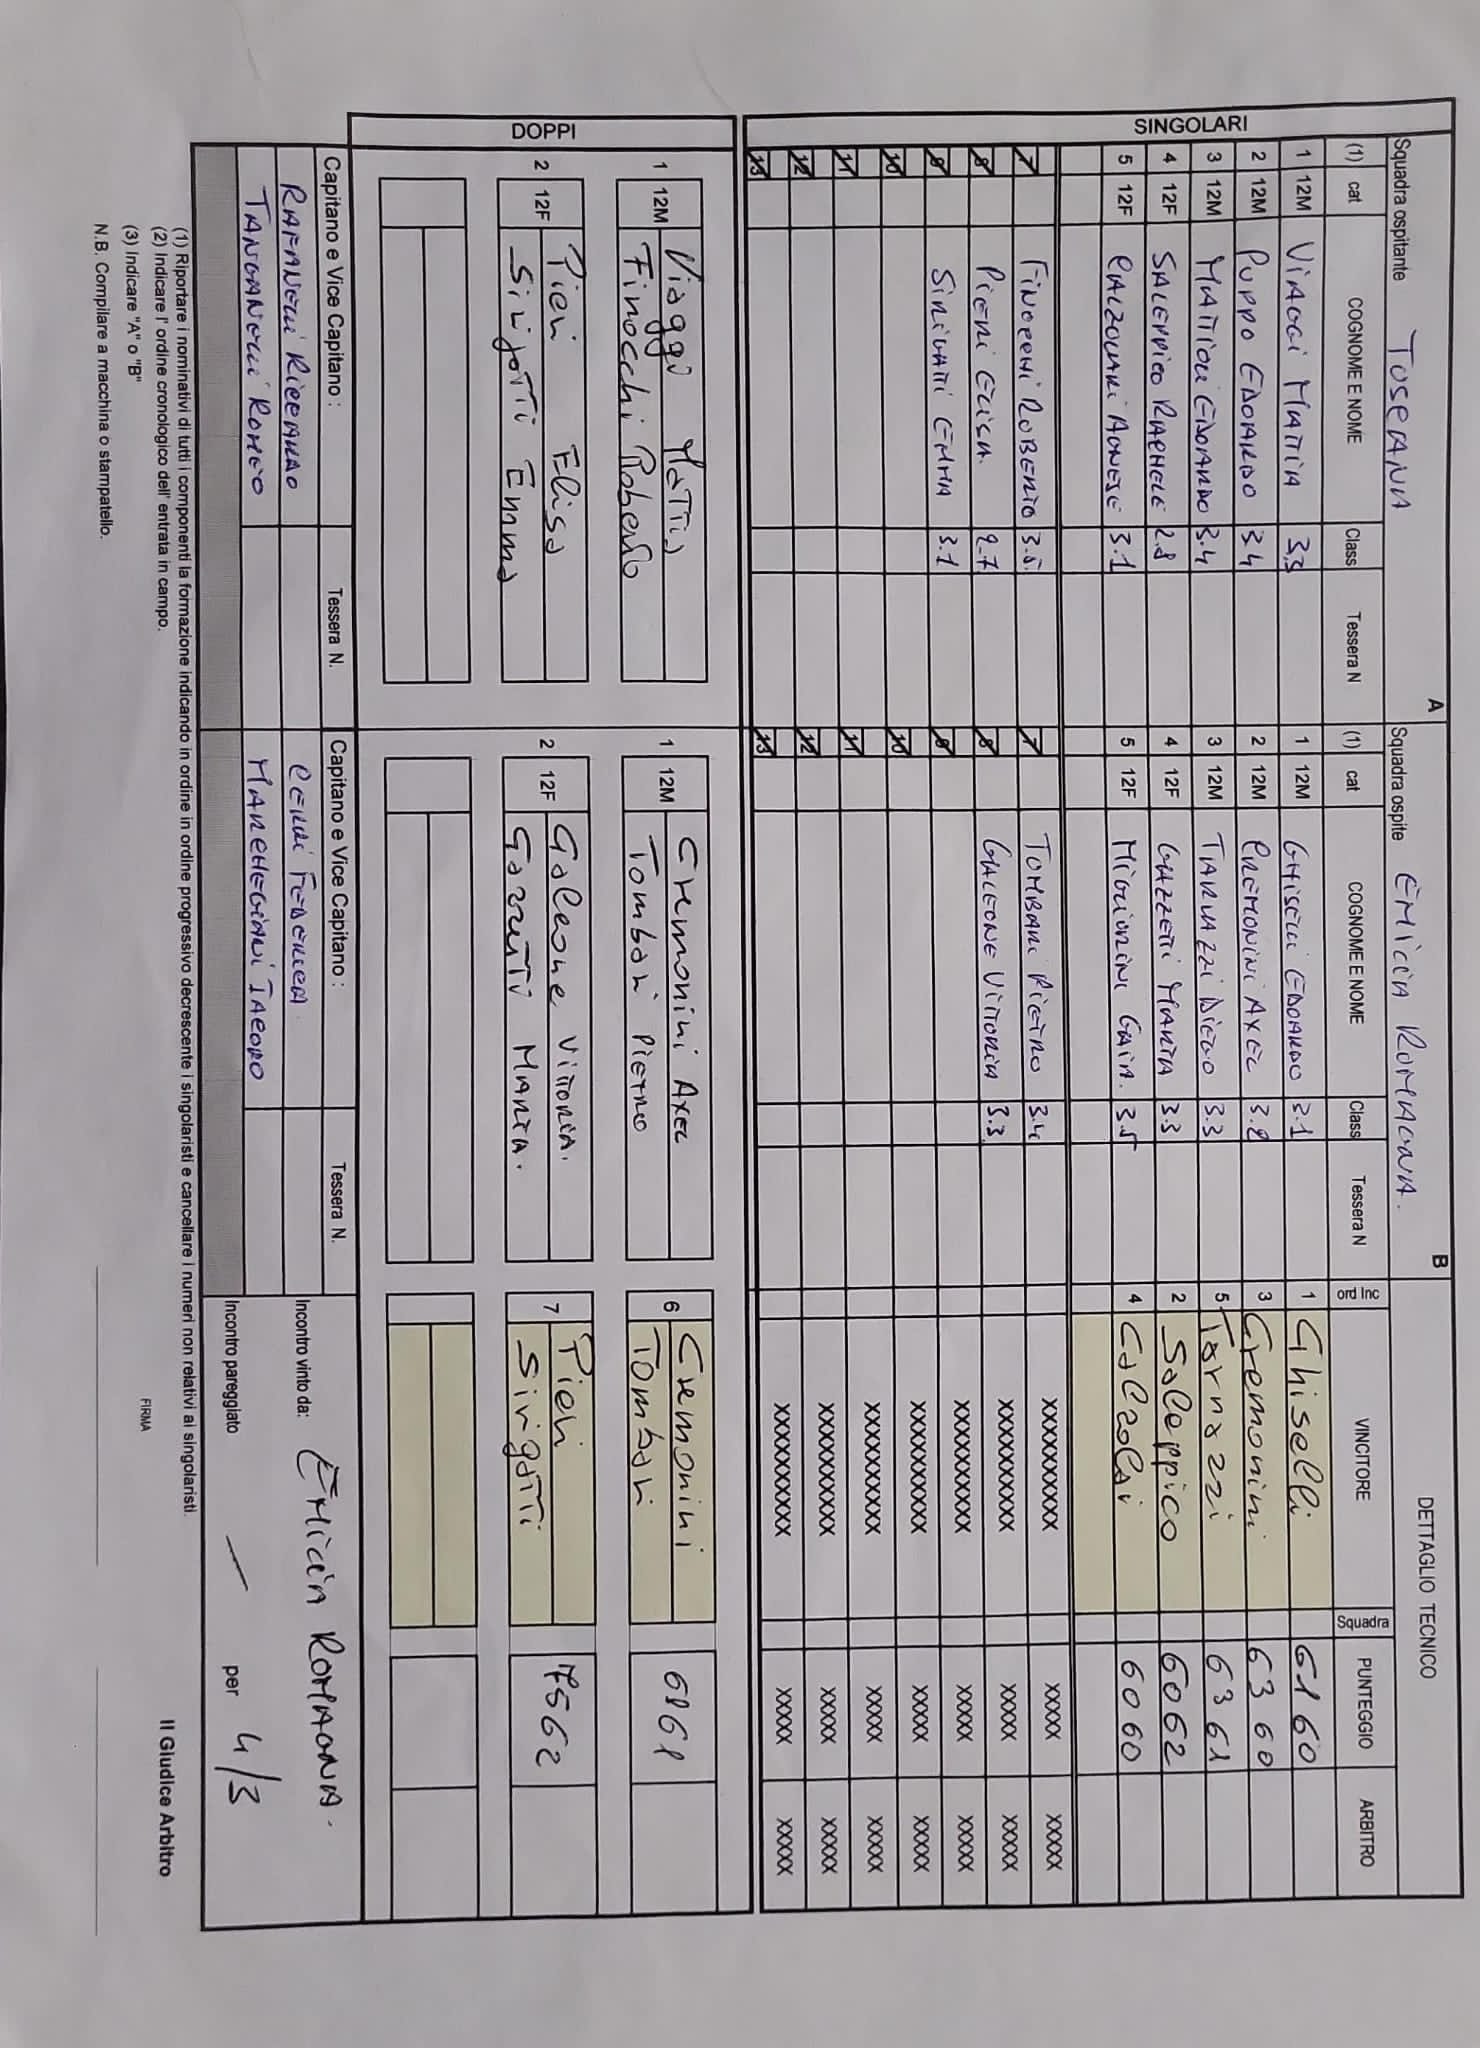 Squadra ospitante TOSCANA A Squadra ospite EMILIA ROMAGNA. B DETTAGLIO TECNICO
(1) cat COGNOME E NOME Class Tessera N (1) cat COGNOME E NOME Class Tessera N ord Inc VINCITORE Squadra PUNTEGGIO ARBITRO
SINGOLARI
1 12M VIAGGI MATTIA 3.3 1 12M GHISELLI EDOARDO 3.1 1 Ghiselli 61 60
2 12M PUPPO EDOARDO 3.4 2 12M CREMONINI AXEL 3.2 3 Cremonini 63 60
3 12M MATTIOLI EDOARDO 3.4 3 12M TARLAZZI DIEGO 3.3 5 Tarlazzi 63 61
4 12F SALEPPICO RAPHELE 2.8 4 12F GAZZETTI MARTA 3.3 2 Saleppico 60 62
5 12F CALZOLARI AGNESE 3.1 5 12F MIGLIORINI GAIA. 3.5 4 Calzolai 60 60
7 FINOCCHI ROBERTO 3.5. 7 TOMBARI PIETRO 3.4 XXXXXXXXXXX XXXXX XXXXX
8 PIERI ELISA 2.7 8 GALEONE VITTORIA 3.3 XXXXXXXXXXX XXXXX XXXXX
9 SIRIGATTI EMMA 3.1 9 XXXXXXXXXXX XXXXX XXXXX
10 10 XXXXXXXXXXX XXXXX XXXXX
11 11 XXXXXXXXXXX XXXXX XXXXX
12 12 XXXXXXXXXXX XXXXX XXXXX
13 13 XXXXXXXXXXX XXXXX XXXXX
DOPPI
1 12M Viaggi Mattia 1 12M Cremonini AXEL 6 Cremonini 61 61
Finocchi Roberto Tombari PIETRO Tombari
2 12F Pieri Elisa 2 12F Galeone VITTORIA. 7 Pieri 75 62
Sirigatti Emma Gazzetti MARTA. Sirigatti
Capitano e Vice Capitano : Tessera N. Capitano e Vice Capitano : Tessera N. Incontro vinto da: EMILIA ROMAGNA.
RAFANELLI RICCARDO CERRI FEDERICA
TANGANELLI ROMEO MARCHEGIANI IACOPO
Incontro pareggiato — per 4/3
(1) Riportare i nominativi di tutti i componenti la formazione indicando in ordine in ordine progressivo decrescente i singolaristi e cancellare i numeri non relativi ai singolaristi.
(2) Indicare l' ordine cronologico dell' entrata in campo.
(3) Indicare "A" o "B"
N.B. Compilare a macchina o stampatello.
FIRMA
Il Giudice Arbitro